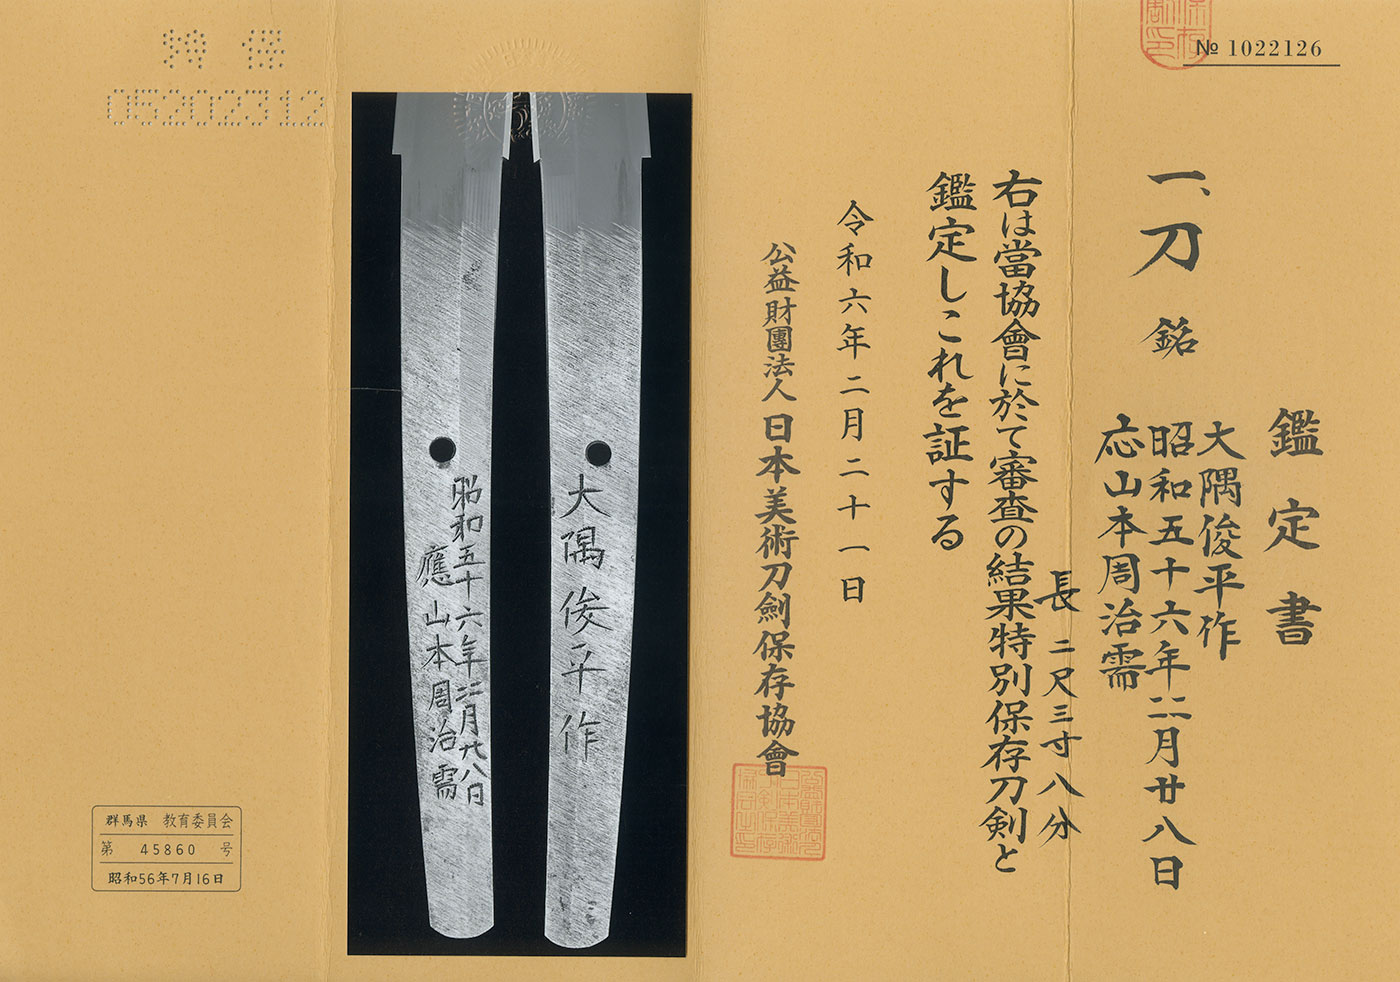 № 1022126
鑑定書
一、刀 銘
大隅俊平作
昭和五十六年二月廿八日
応山本周治需
長 二尺三寸八分
右は當協會に於て審査の結果特別保存刀剣と
鑑定しこれを証する
令和六年二月二十一日
公益財團法人 日本美術刀劍保存協會
大隅俊平作
昭和五十六年二月廿八日
應山本周治需
特保
05202312
群馬県 教育委員会
第 45860 号
昭和56年7月16日